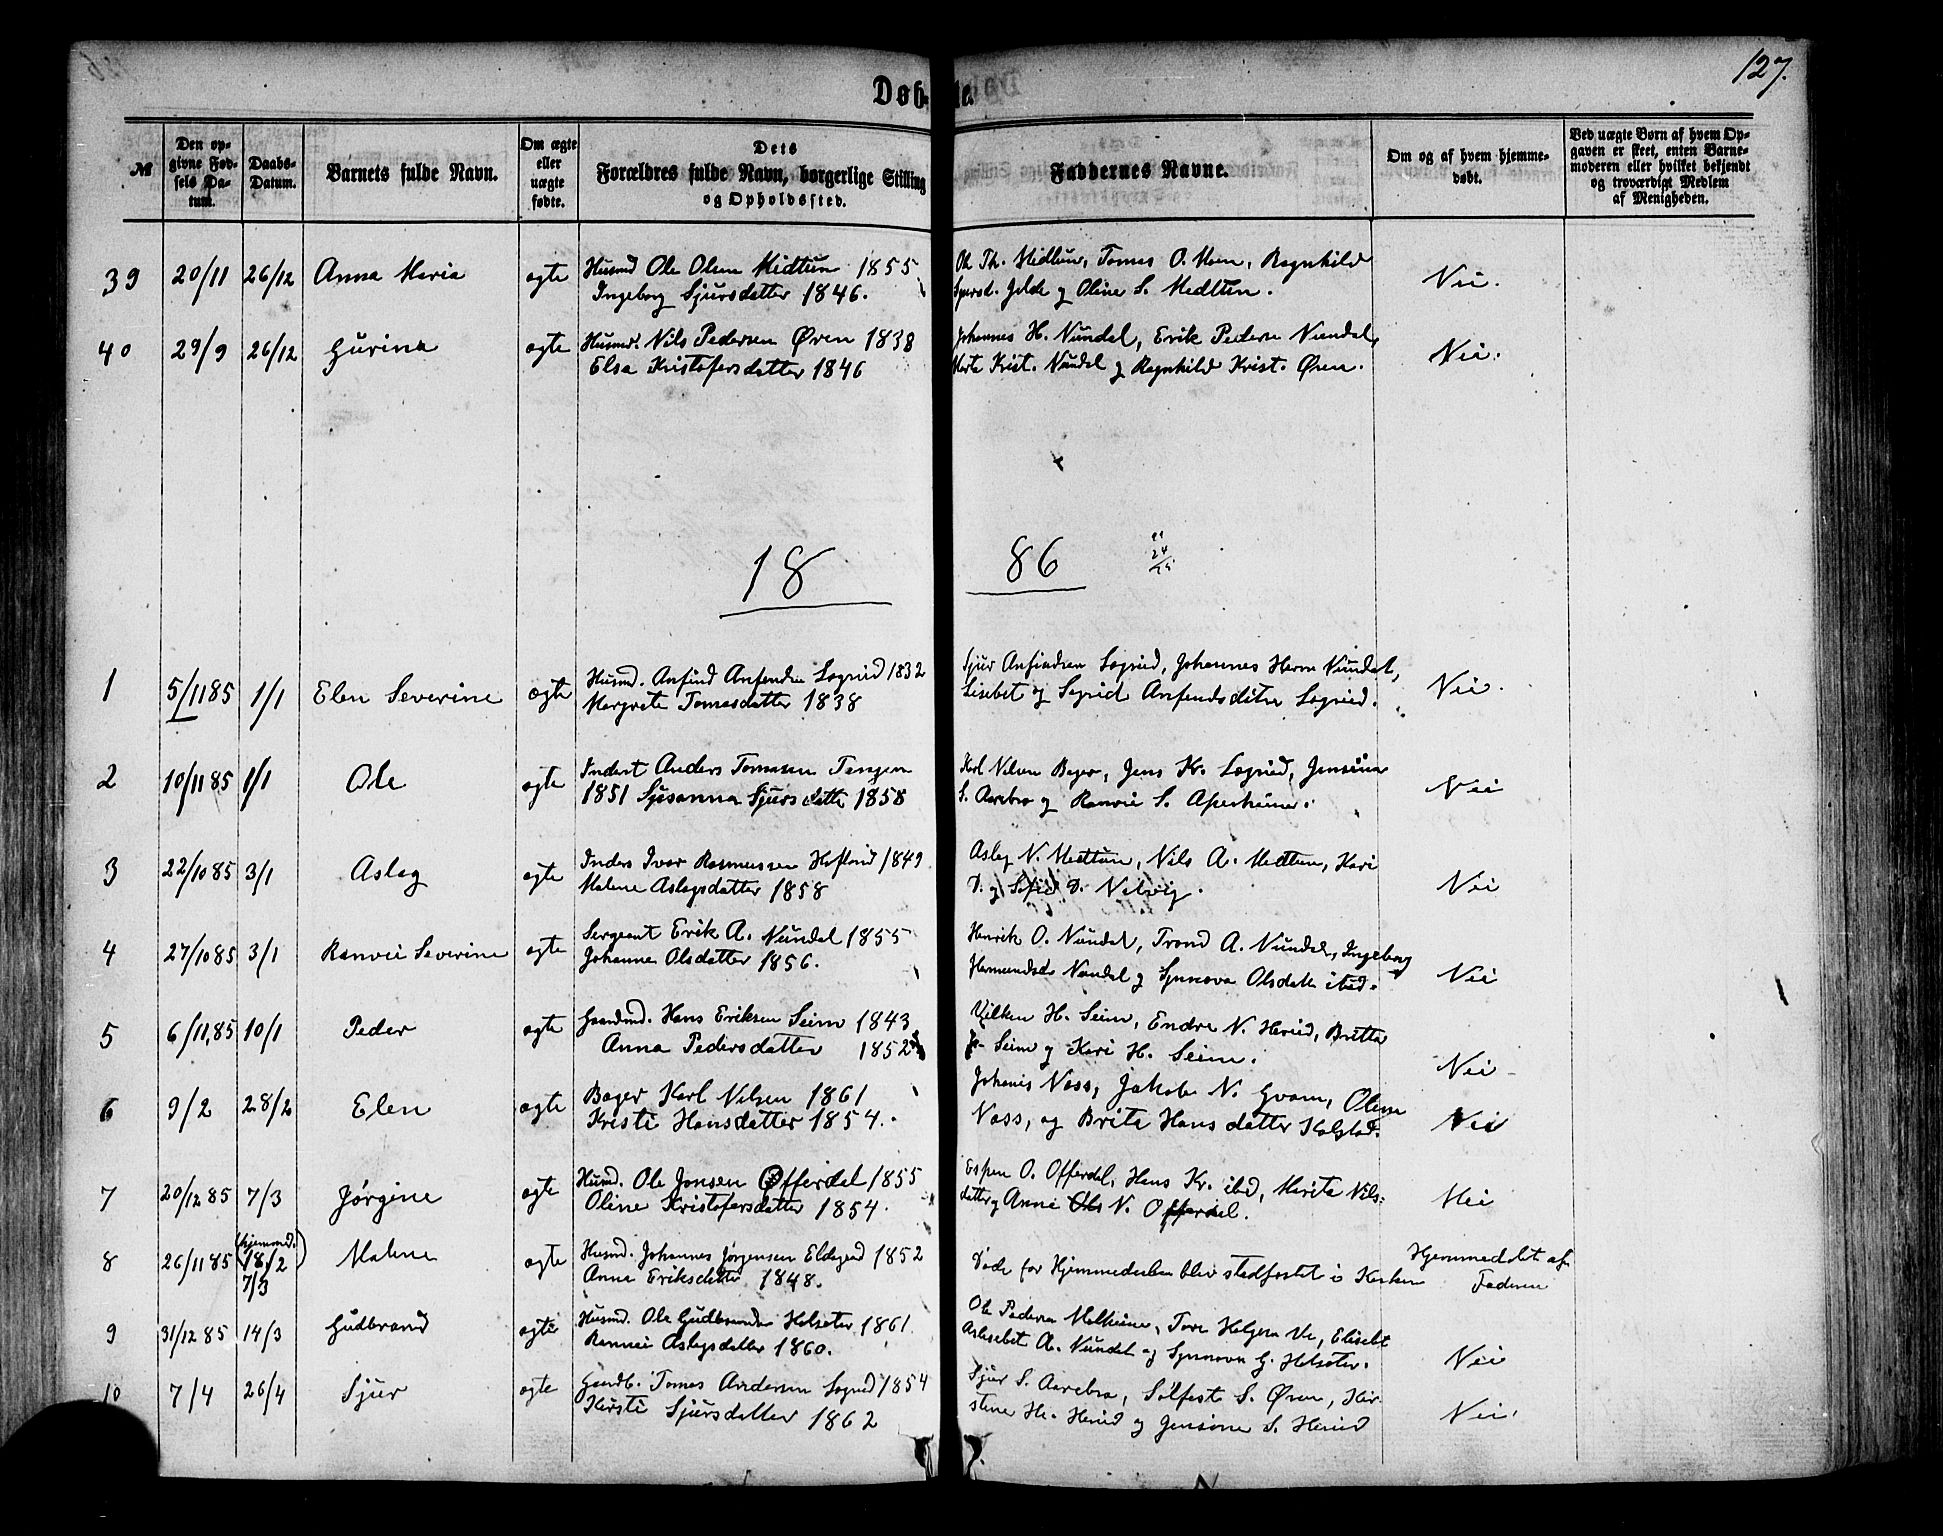 127.
Døb- te.
№
Den op-
givne Fød-
sels Da-
tum.
Daabs-
Datum.
Barnets fulde Navn.
Om ægte
eller
uægte
fødte.
Dets
Forældres fulde Navn, borgerlige Stilling
og Opholdssted.
Faddernes Navne.
Om og af hvem hjemme-
døbt.
Ved uægte Børn af hvem Op-
gaven er skeet, enten Barne-
moderen eller hvilket bekjendt
og troværdigt Medlem
af Menigheden.
39 20/11 26/12 Anna Maria ægte Husmd Ole Olsen Midtun 1855
Ingeborg Sjursdatter 1846.
Ole Th. Midtun, Tomas O. Moen, Ragnhild
Sjursd. Jelde og Oline S. Medtun.
Nei.
40 29/9 26/12 Gurina ægte Husmd. Nils Pedersen Øren 1838
Elsa Kristofersdatter 1846
Johannes H. Nundal, Erik Pedersen Nundal,
Marta Krist. Nundal og Ragnhild Krist. Øren.
Nei.
18 86
24
1 5/11 85 1/1 Elen Severine ægte Husmd. Anfind Anfindsen Sognid 1832
Margrete Tomasdatter 1838
Sjur Anfindsen Sognid, Johannes Herm Nundal,
Lisebet og Sigrid Anfindsdøtre Sognid.
Nei.
2 10/11 85 1/1 Ole ægte Inderst Anders Tomasen Tangen
1851 Susanna Sjursdatter 1858
Karl Nilsen Bager, Jens Kr. Sognid, Jensina
S. Aarebro og Ranvei S. Asperheim.
Nei
3 22/10 85 3/1 Aslag ægte Inders Ivar Rasmussen Hofland 1849
Malene Aslagsdatter 1858
Aslag N. Medtun, Nils A. Medtun, Kari
D. og Sofie D. Natvig.
Nei
4 27/10 85 3/1 Ranvei Severine ægte Sergeant Erik A. Nundal 1855
Johanna Olsdatter 1856.
Henrik O. Nundal, Trond A. Nundal, Ingeborg
Hermundsd. Nundal og Synnøva Olsdatt. ibid.
Nei
5 6/11,85 10/1 Peder ægte Gaardmd. Hans Eriksen Seim 1843
Anna Pedersdatter 1852
Vilken H. Seim, Endre N. Herud, Britta
Seim og Kari H. Seim.
Nei
6 9/2 28/2 Elen ægte Bager Karl Nilsen 1861
Kristi Hansdatter 1854.
Johanis Næss, Jakob N. Hvam, Olina
Næss, og Brita Hansdatter Kolstad.
Nei
7 20/12 85 7/3 Jørgine ægte Husmd. Ole Jonsen Offerdal 1855
Oline Kristofersdatter 1854.
Espen O. Offerdal, Hans Kr. ibid, Marita Nils-
datter og Anne Ols N. Offerdal.
Nei
8 26/11 85 (hjemmed. 18/2) 7/3 Malene ægte Husmd. Johannes Jørgensen Eldegard 1852
Anna Eriksdatter 1848.
Døde før Hjemmedaaben blev stadfæstet i Kirken
Hjemmedøbt af
Faderen
9 31/12 85 14/3 Gudbrand ægte Husmd. Ole Gudbrandsen Holsæter 1861.
Ranvei Aslagsdatter 1860.
Ole Pedersen Molheim, Tore Helgesen Ve, Elisebt
Aslesebet A. Nundal og Synnøva G. Holsæter.
Nei
10 7/4 26/4 Sjur ægte Gaardb. Tomas Andersen Sognid 1854
Kirsti Sjursdatter 1862
Sjur S. Aarebro, Sølfest S. Øren, Kir-
stine H. Herud og Jensine S. Herud
Nei.